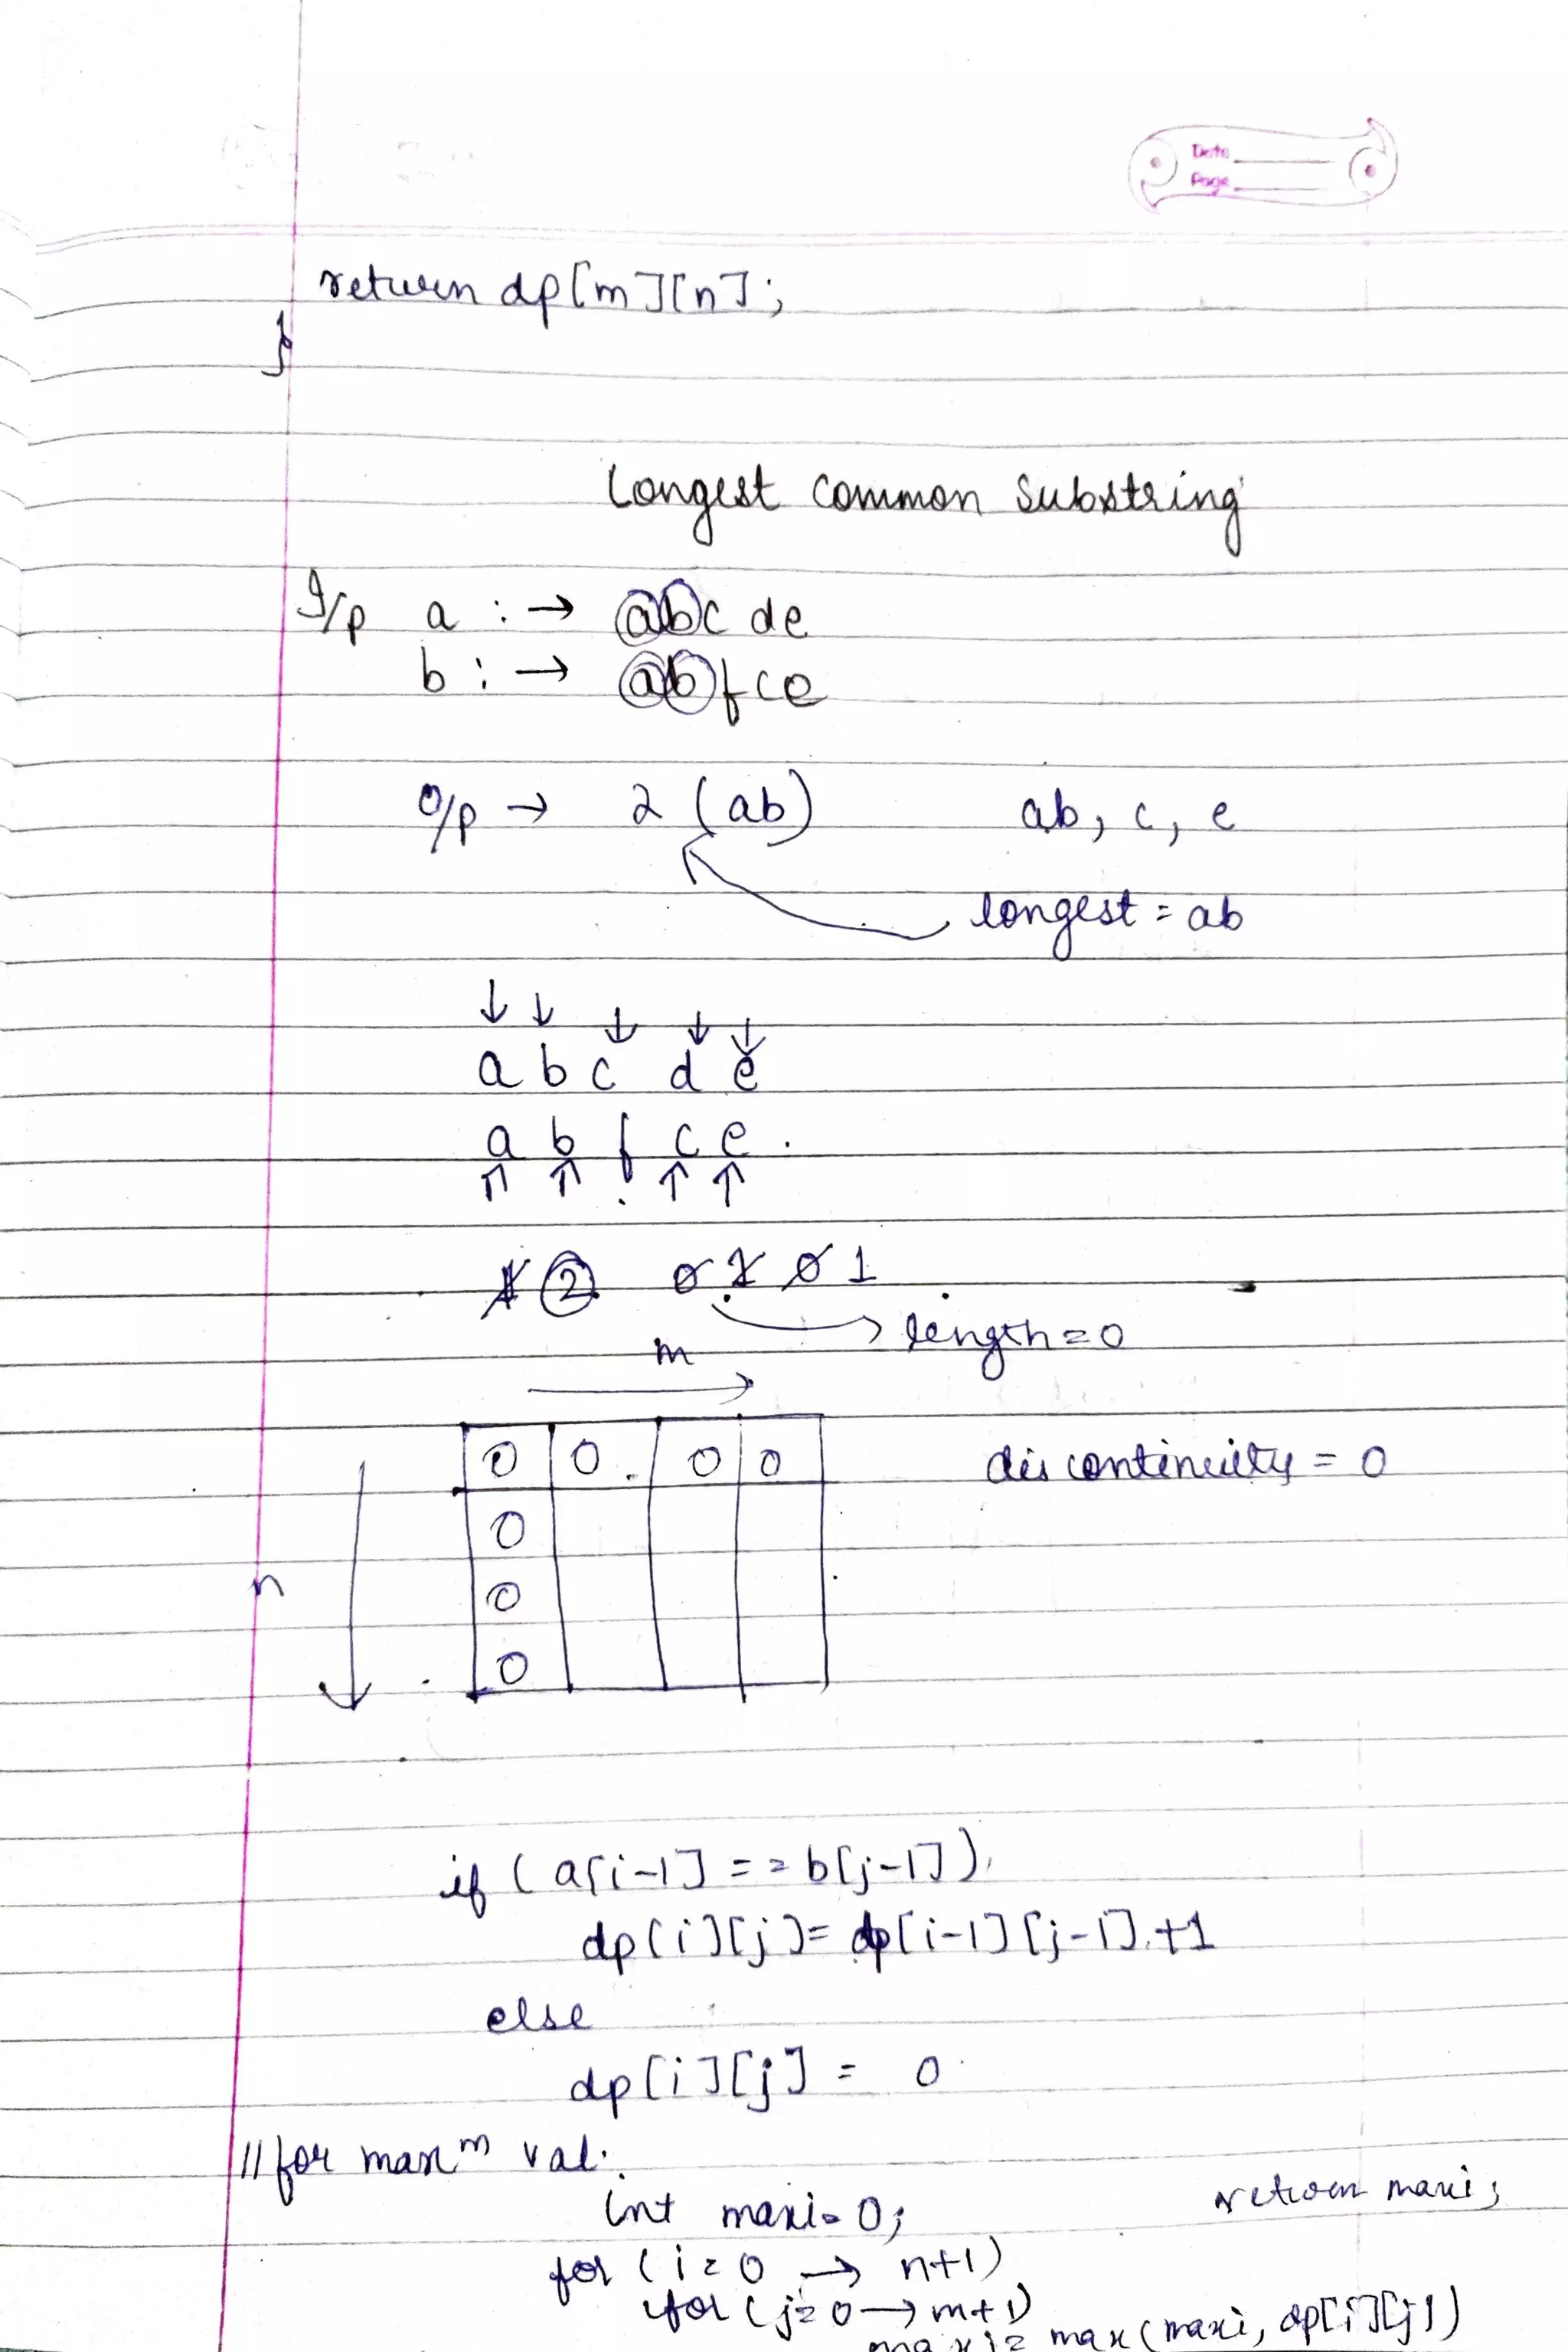 Date
Page
return dp[m][n];
}
Longest common substring
I/p a : → abc de
b : → abfce
O/p → 2 (ab) ab, c, e
longest = ab
↓ ↓ ↓ ↓ ↓
a b c d e
a b f c e .
↑ ↑ ↑ ↑
1 2 0 1 0 1
→ length = 0
m
0 0 0 0 discontinuity = 0
0
n 0
0
if (a[i-1] == b[j-1])
dp[i][j] = dp[i-1][j-1] +1
else
dp[i][j] = 0
// for maxm val.
int maxi = 0; return maxi;
for (i = 0 → n+1)
for (j = 0 → m+1)
maxi = max (maxi, dp[i][j])